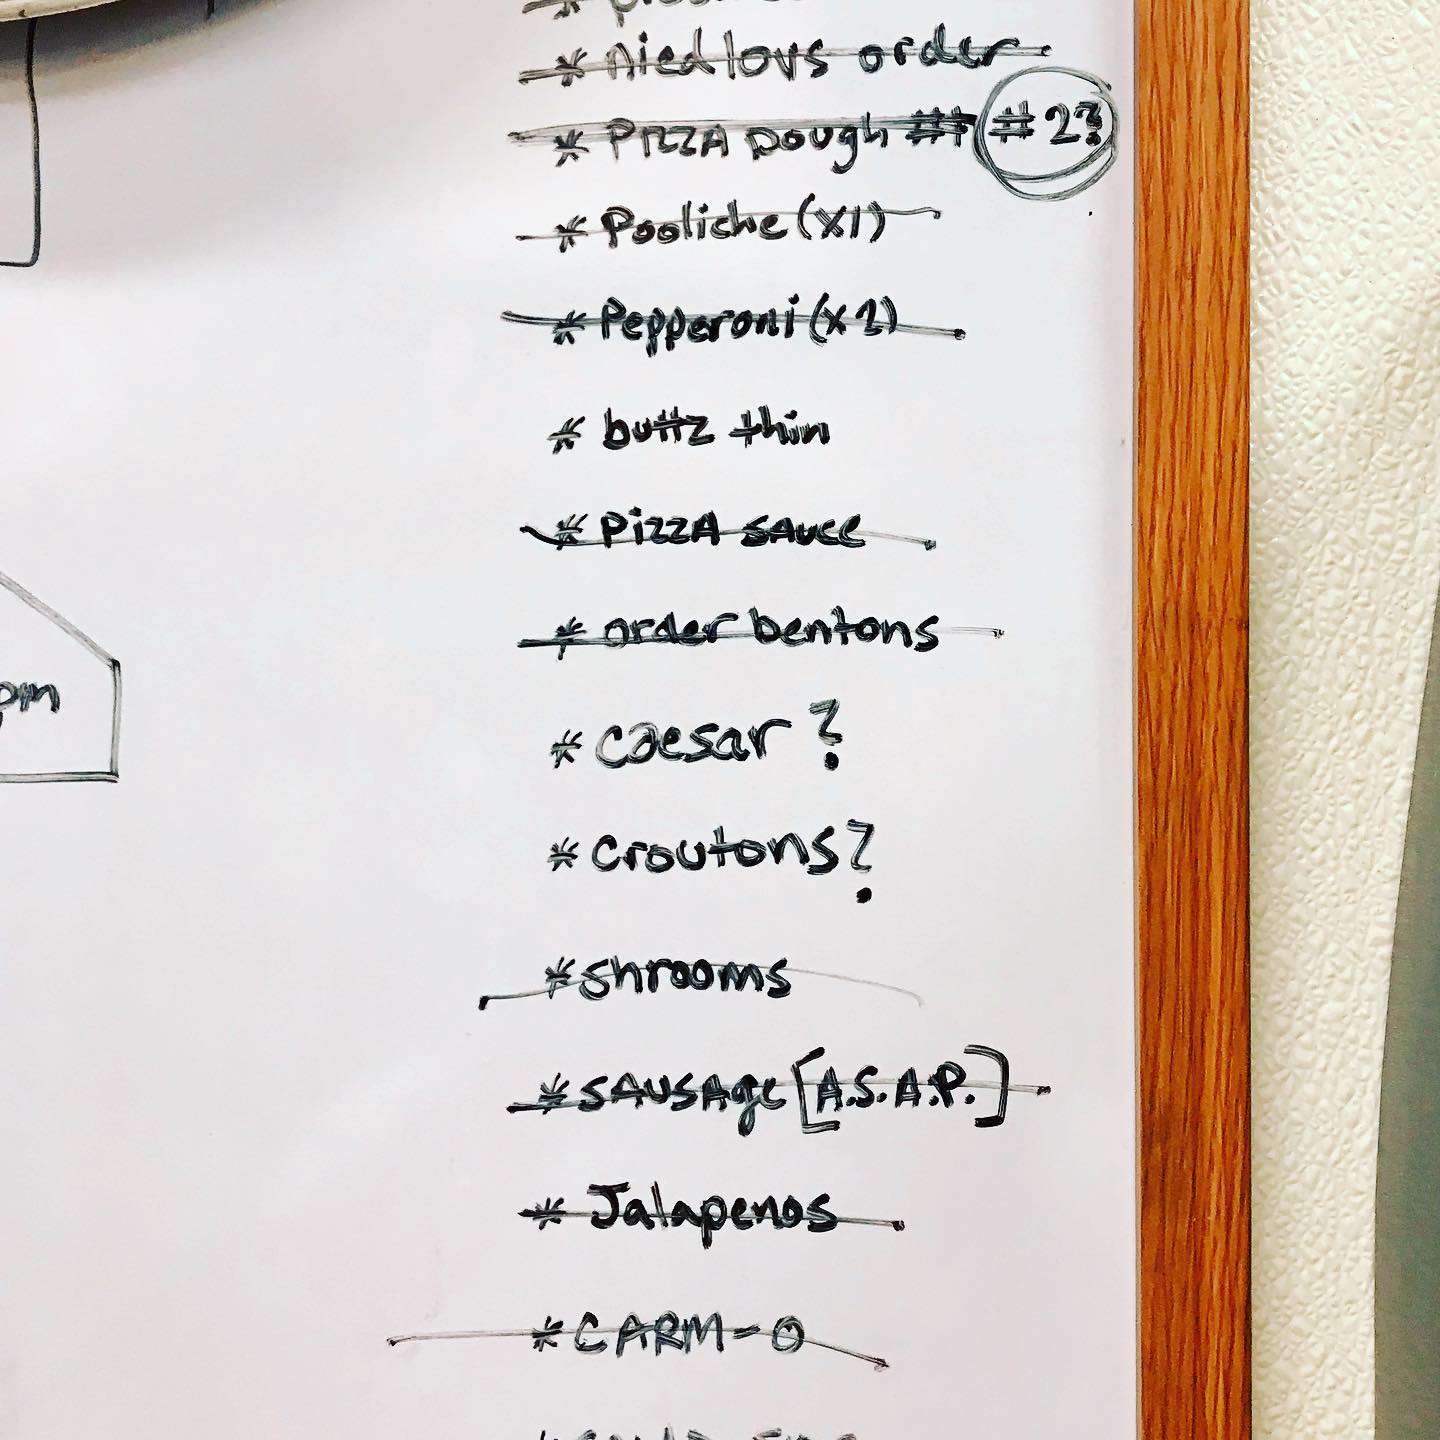 * niedlovs order
* PIZZA DOugh #2?
* Pooliche (x1)
* Pepperoni (x2)
* buttz thin
* PiZZA SAUCE
* order bentons
pm
* caesar ?
* croutons?
* shrooms
* SAUSAge [A.S.A.P.]
* Jalapenos
* CARM-O